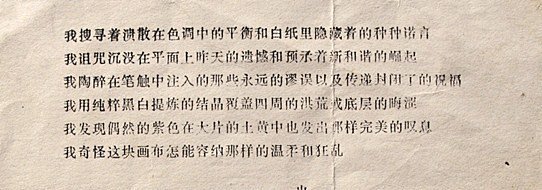 我搜寻着溃散在色调中的平衡和白纸里隐藏着的种种诺言
我诅咒沉没在平面上昨天的遗憾和预示着新和谐的崛起
我陶醉在笔触中注入的那些永远的谬误以及传递封闭了的祝福
我用纯粹黑白提炼的结晶覆盖四周的洪荒或底层的晦涩
我发现偶然的紫色在大片的土黄中也发出那样完美的叹息
我奇怪这块画布怎能容纳那样的温柔和狂乱